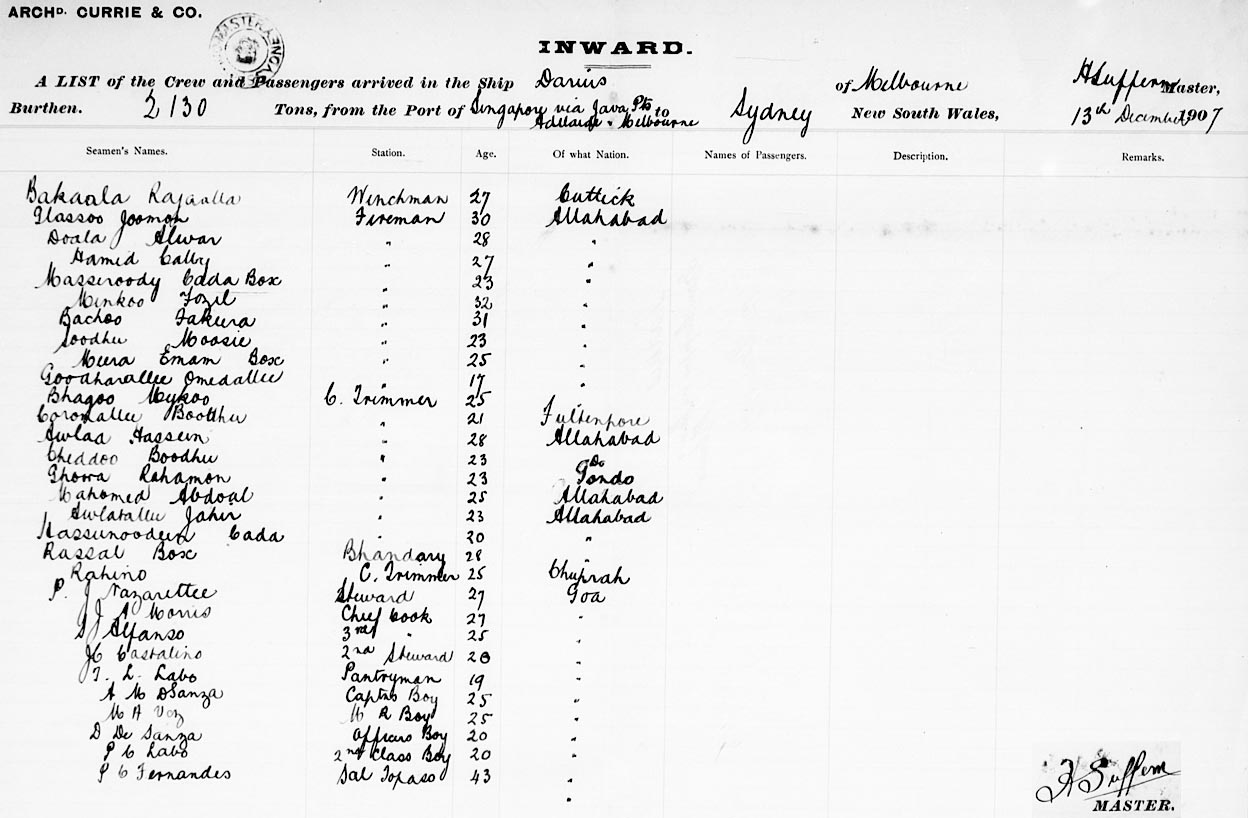 ARCHD. CURRIE & CO.
INWARD.
A LIST of the Crew and Passengers arrived in the Ship Darius of Melbourne H Suffern Master,
Burthen. 2130 Tons, from the Port of Singapore via Java Pts Adelaide & Melbourne to Sydney New South Wales, 13th December 1907
Seamen's Names. Station. Age. Of what Nation. Names of Passengers. Description. Remarks.
Bakaala Rajaalla Winchman 27 Cuttick
Glassoo Joomon Fireman 30 Allahabad
Doala Alwar " 28 "
Hamid Calby " 27 "
Masseroody Cada Box " 23 "
Minkoo Fozil " 32 "
Bachoo Fakura " 31 "
Soodhu Moosie " 23 "
Meera Emam Box " 25 "
Goodharallee Omedallee " 17 "
Bhagoo Mykoo C. Trimmer 25 "
Coromallee Boodhu " 21 Futtenpore
Awlaa Hassein " 28 Allahabad
Cheddoo Boodhu " 23 Do
Ghowa Rahamon " 23 Gondo
Mahomed Abdoal " 25 Allahabad
Awlatallee Jahir " 23 Allahabad
Hassunoodeen Cada " 20 "
Rassal Box Bhandary 28
Rahino C. Trimmer 25 Chuprah
P. J Nazarettee Steward 27 Goa
J A Morris Chief Cook 27 "
S J Alfanso 3rd " 25 "
J C Castalino 2nd Steward 28 "
T. L. Labo Pantryman 19 "
A M DSanza Capts Boy 25 "
M A Voz M R Boy 25 "
D De Sanza Officers Boy 20 "
P C Labo 2nd Class Boy 20 "
P C Fernandes Sal Topaso 43 "
"
H Suffern
MASTER.